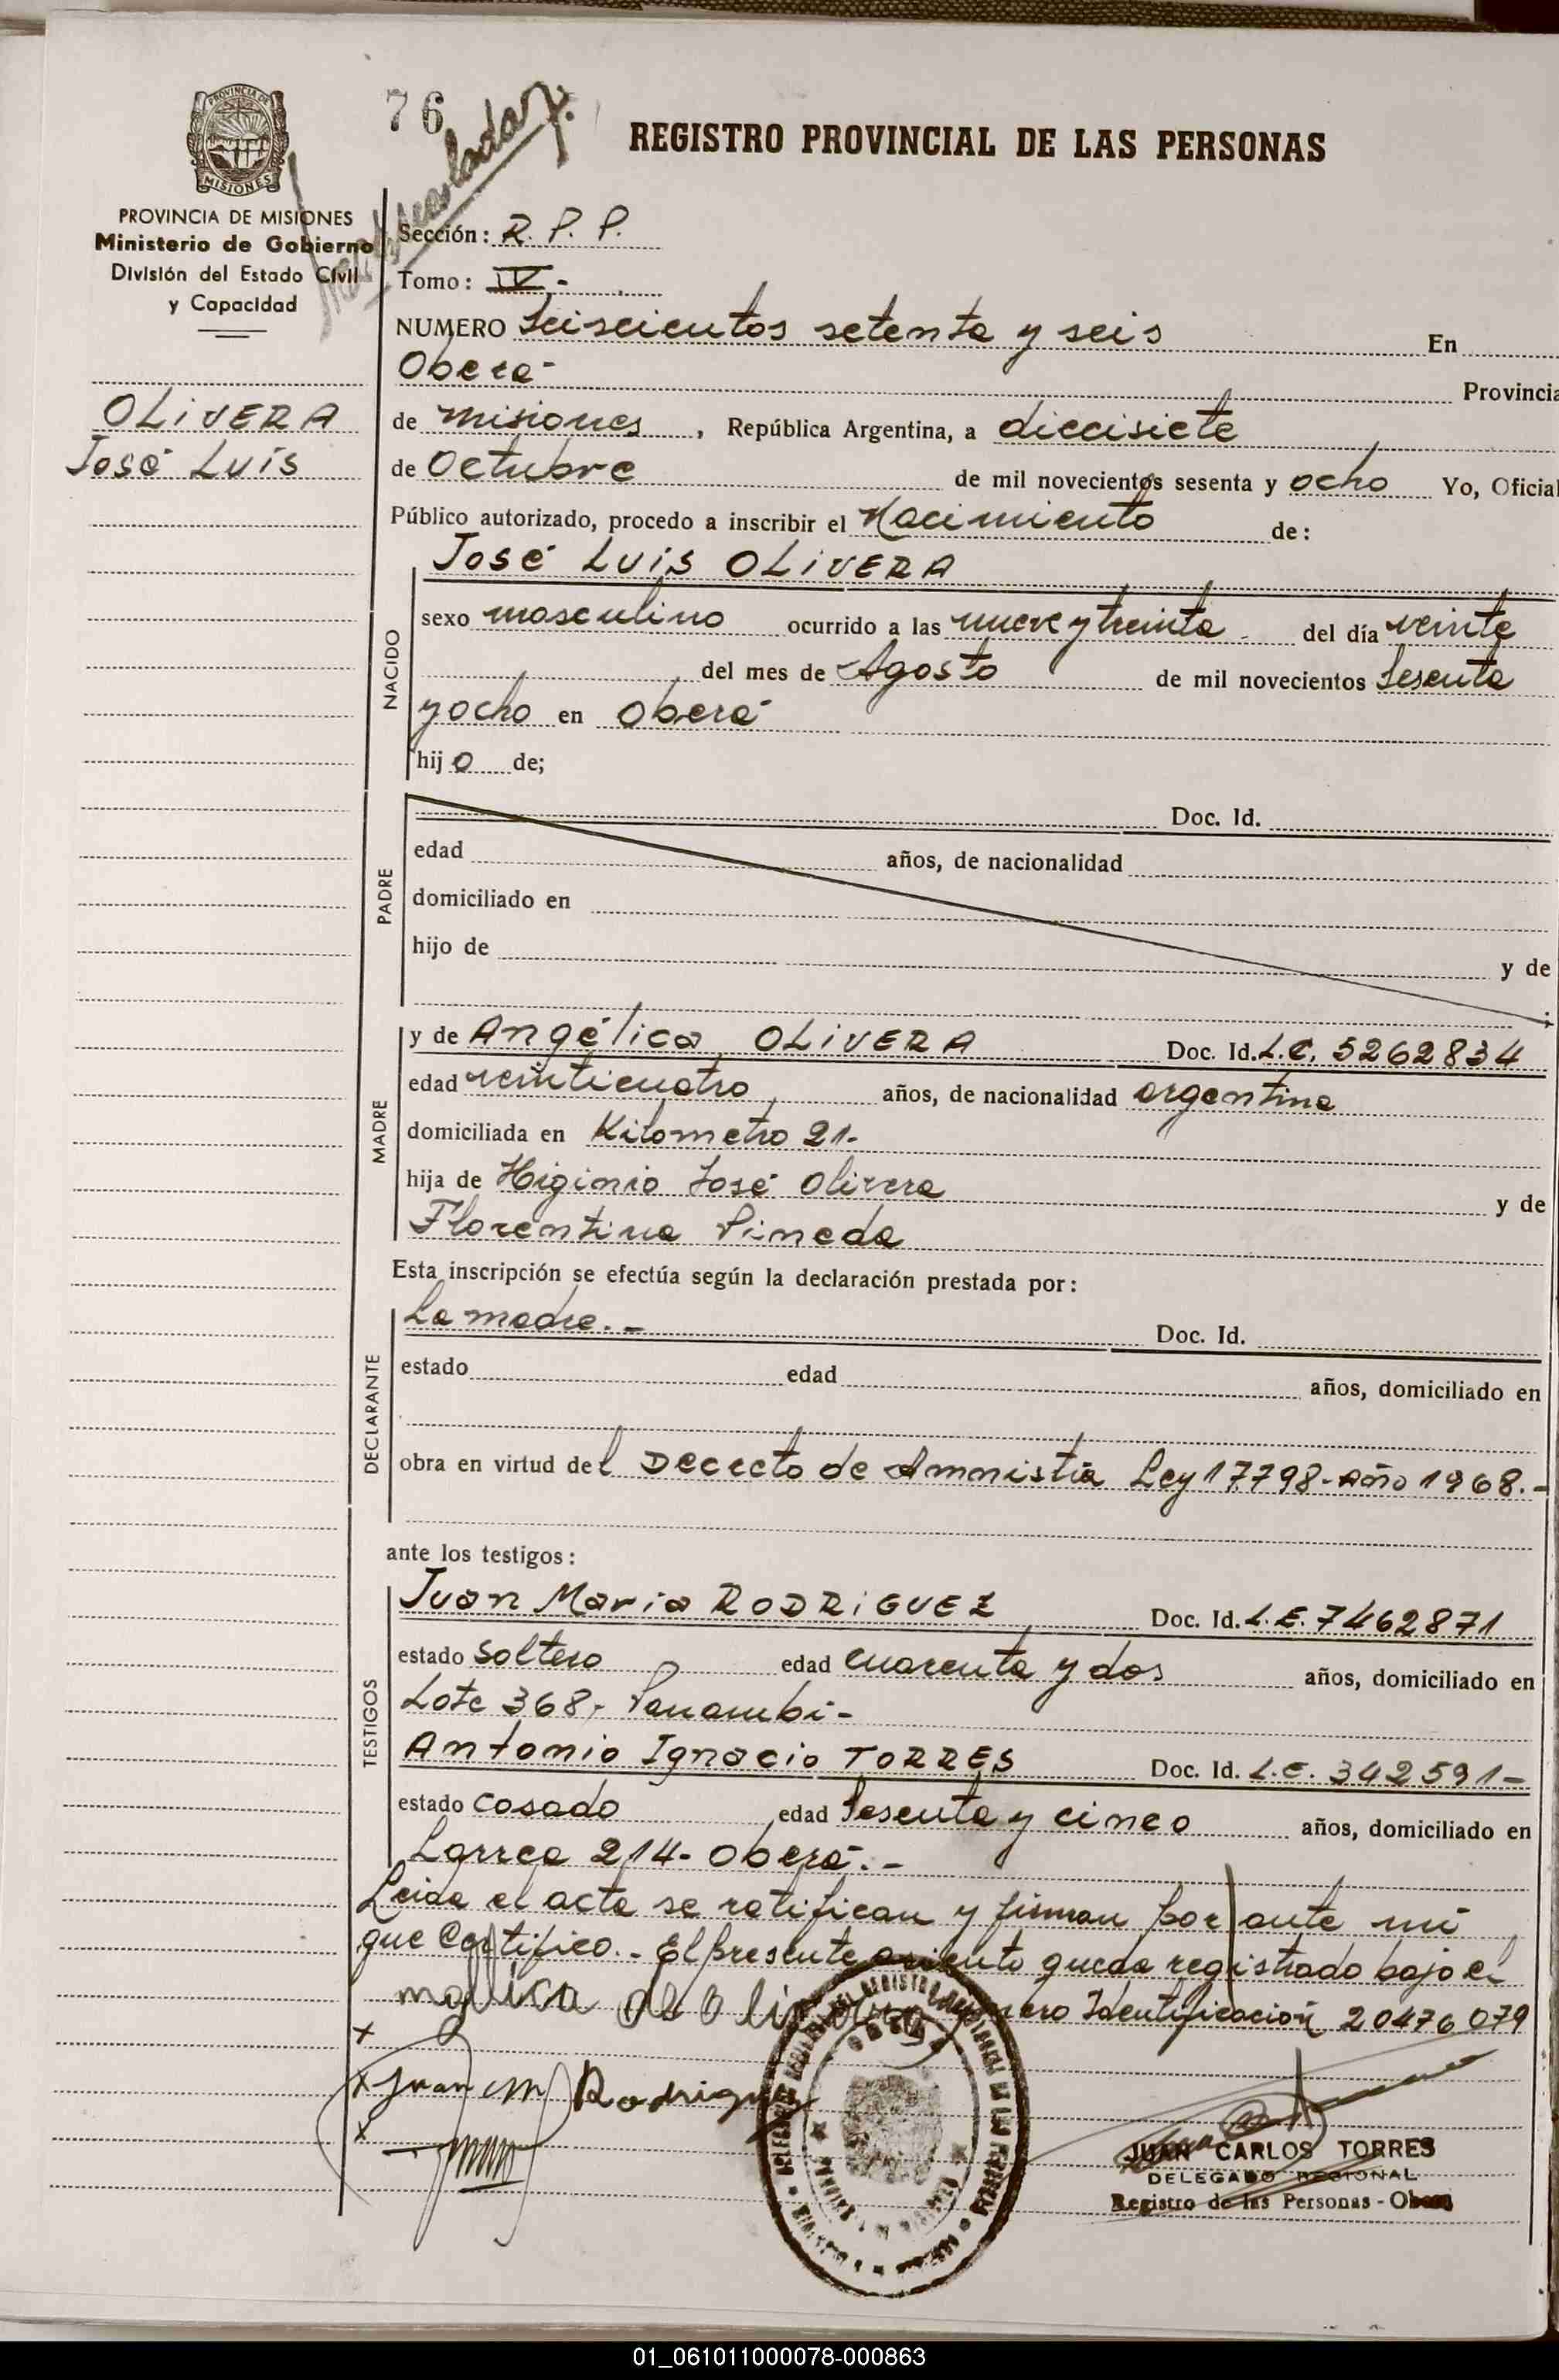 76
REGISTRO PROVINCIAL DE LAS PERSONAS
PROVINCIA DE MISIONES
MISIONES
PROVINCIA DE MISIONES
Ministerio de Gobierno
División del Estado Civil
y Capacidad
Sección: R. P. P.
Tomo: IV.-
NUMERO Seiscientos setenta y seis En
Oberá Provincia
OLIVERA
José Luis
de Misiones, República Argentina, a diecisiete
de Octubre de mil novecientos sesenta y ocho Yo, Oficial
Público autorizado, procedo a inscribir el Nacimiento de:
José Luis OLIVERA
NACIDO
sexo masculino ocurrido a las nueve y treinta del día veinte
del mes de Agosto de mil novecientos sesenta
y ocho en Oberá
hijo de;
PADRE
Doc. Id.
edad años, de nacionalidad
domiciliado en
hijo de y de
MADRE
y de Angélica OLIVERA Doc. Id. L.C. 5262834
edad veinticuatro años, de nacionalidad argentina
domiciliada en Kilometro 21.
hija de Higinio José Olivera y de
Florentina Pineda
Esta inscripción se efectúa según la declaración prestada por:
DECLARANTE
La madre.- Doc. Id.
estado edad años, domiciliado en
obra en virtud del Decreto de Amnistía Ley 17798-Año 1968.-
ante los testigos:
TESTIGOS
Juan Maria RODRIGUEZ Doc. Id. L.E. 7462871
estado soltero edad cuarenta y dos años, domiciliado en
Lote 368,- Panambi-
Antonio Ignacio TORRES Doc. Id. L.E. 342591-
estado casado edad sesenta y cinco años, domiciliado en
Larrea 214- Oberá.-
Leida el acta se ratifican y firman por ante mi
que Certifico.- El presente asiento queda registrado bajo el
Identificación 20476079
Juan M Rodrigu
JUAN CARLOS TORRES
DELEGADO REGIONAL
Registro de las Personas - Oberá
01_061011000078-000863